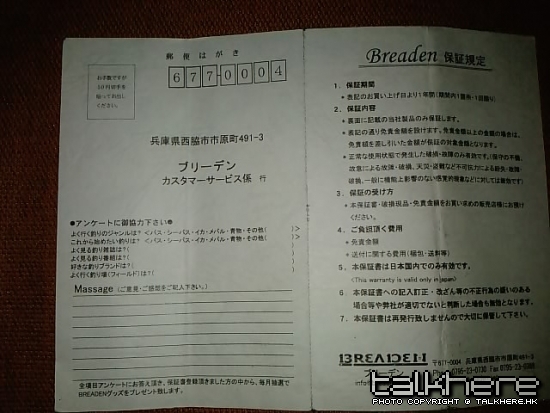 郵便はがき
お手数ですが
50円切手を
貼って投函し
ください。
677-0004
兵庫県西脇市市原町491-3
ブリーデン
カスタマーサービス係 行
●アンケートに御協力下さい●
よく行く釣りのジャンルは? <バス・シーバス・イカ・メバル・青物・その他( )>
これから始めたい釣りは? <バス・シーバス・イカ・メバル・青物・その他( )>
よく見る釣り雑誌は?( )
よく見る釣り番組は?( )
好きな釣りブランドは?( )
よく行く釣り場(フィールド)は?( )
Massage (ご意見・ご感想をご記入下さい。)
全項目アンケートにお答え頂き、保証書登録頂きました方の中から、毎月抽選で
BREADENグッズをプレゼント致します。
Breaden 保証規定
1. 保証期間
●表記のお買い上げ日より1年間(期間内1箇所・1回限り)
2. 保証内容
●裏面に記載の当社製品のみ保証します。
●表記の通り免責金額を設けます。免責金額以上の金額の場合は、
免責額を差し引いた金額が保証の対象金額となります。
●正常な使用状態で発生した破損・故障のみ有効です。(保守の不備、
故意による故障・破損、天災・盗難など不可抗力による紛失・故障・
破損、一般に機能上影響のない感覚的現象などに対しては無効)
3. 保証の受け方
●本保証書・破損現品・免責金額をお買い求めの販売店様にお預け
ください。
4. ご負担頂く費用
●免責金額
●送付に関する費用(梱包・送料等)
5. 本保証書は日本国内でのみ有効です。
<This warranty is valid only in japan>
6. 本保証書への記入訂正・改ざん等の不正行為の疑いのある
場合等や弊社が適切でないと判断した場合も無効となります。
7. 本保証書は再発行致しませんので大切に保管して下さい。
BREADEN
〒677-0004 兵庫県西脇市市原町491-3
ブリーデン
talkhere
PHOTO COPYRIGHT © TALKHERE.HK